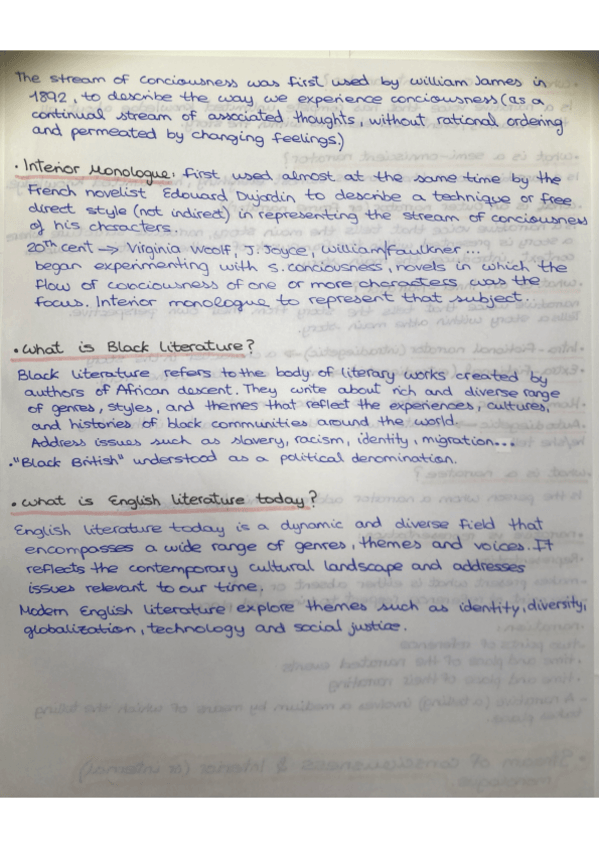 The stream of conciousness was first used by William James in
1892, to describe the way we experience conciousness (as a
continual stream of associated thoughts, without rational ordering
and permeated by changing feelings.)
• Interior Monologue: first used almost at the same time by the
French novelist Edouard Dujardin to describe a technique or free
direct style (not indirect) in representing the stream of conciousness
of his characters.
20th cent → Virginia Woolf, J. Joyce, William Faulkner ...
began experimenting with s. conciousness, novels in which the
flow of conciousness of one or more characters was the
focus. Interior monologue to represent that subject.
• What is Black literature?
Black literature refers to the body of literary works created by
authors of African descent. They write about rich and diverse range
of genres, styles, and themes that reflect the experiences, cultures,
and histories of black communities around the world.
Address issues such as slavery, racism, identity, migration...
• "Black British" understood as a political denomination.
• What is English literature today?
English literature today is a dynamic and diverse field that
encompasses a wide range of genres, themes and voices. It
reflects the contemporary cultural landscape and addresses
issues relevant to our time.
Modern English literature explore themes such as identity, diversity,
globalization, technology and social justice.